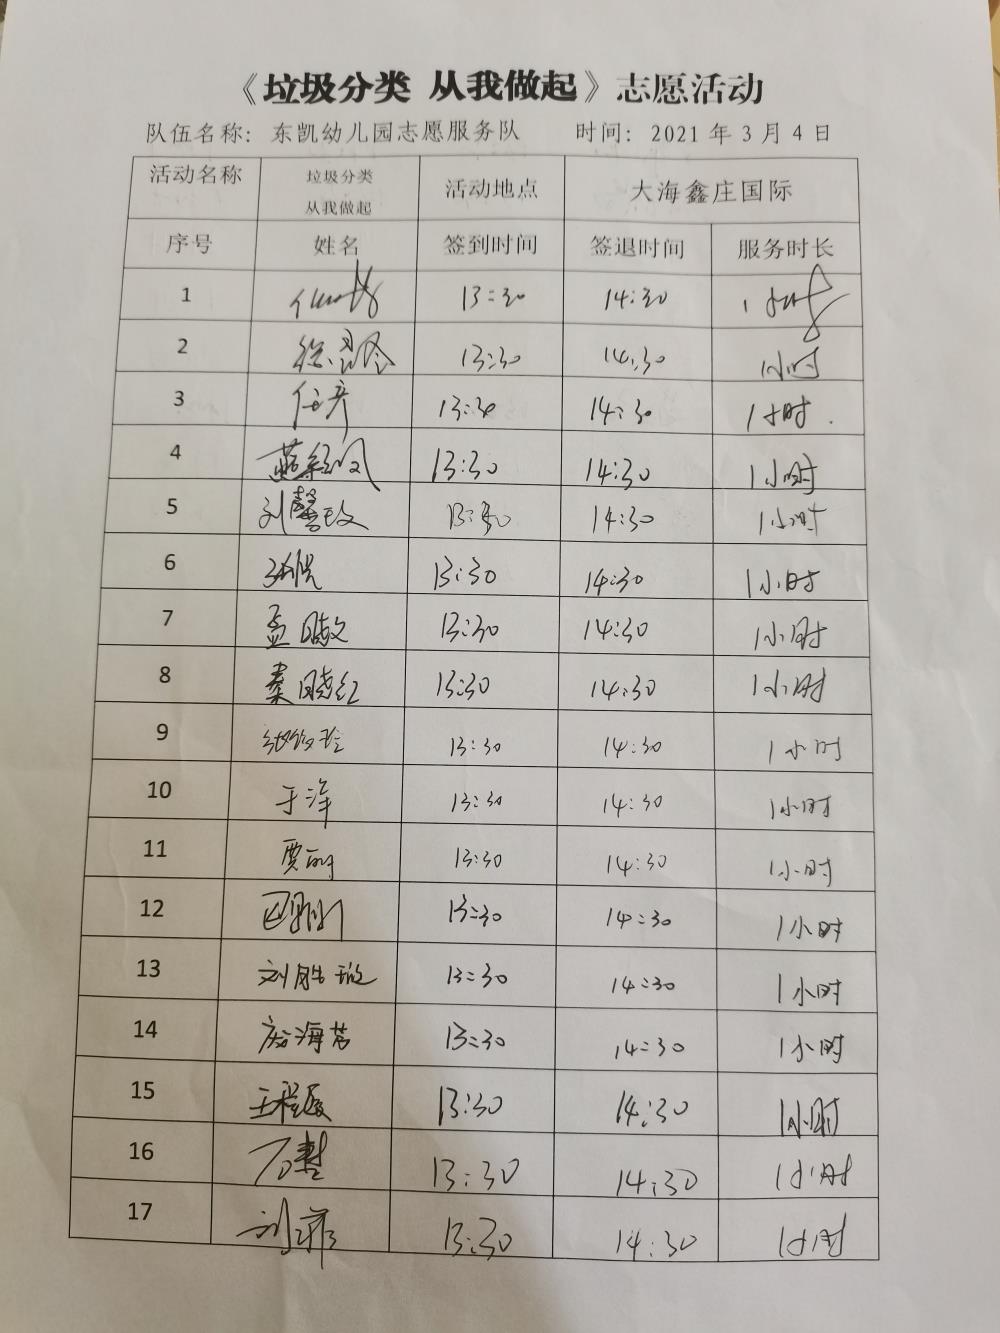 《垃圾分类 从我做起》志愿活动
队伍名称：东凯幼儿园志愿服务队 时间：2021年3月4日
活动名称 垃圾分类 从我做起 活动地点 大海鑫庄国际
序号 姓名 签到时间 签退时间 服务时长
1 13:30 14:30 1小时
2 13:30 14:30 1小时
3 任彦 13:30 14:30 1小时
4 13:30 14:30 1小时
5 刘馨玫 13:30 14:30 1小时
6 13:30 14:30 1小时
7 孟晓文 13:30 14:30 1小时
8 秦晓红 13:30 14:30 1小时
9 13:30 14:30 1小时
10 于洋 13:30 14:30 1小时
11 贾丽 13:30 14:30 1小时
12 13:30 14:30 1小时
13 刘胜璇 13:30 14:30 1小时
14 海芳 13:30 14:30 1小时
15 13:30 14:30 1小时
16 13:30 14:30 1小时
17 刘菲 13:30 14:30 1小时